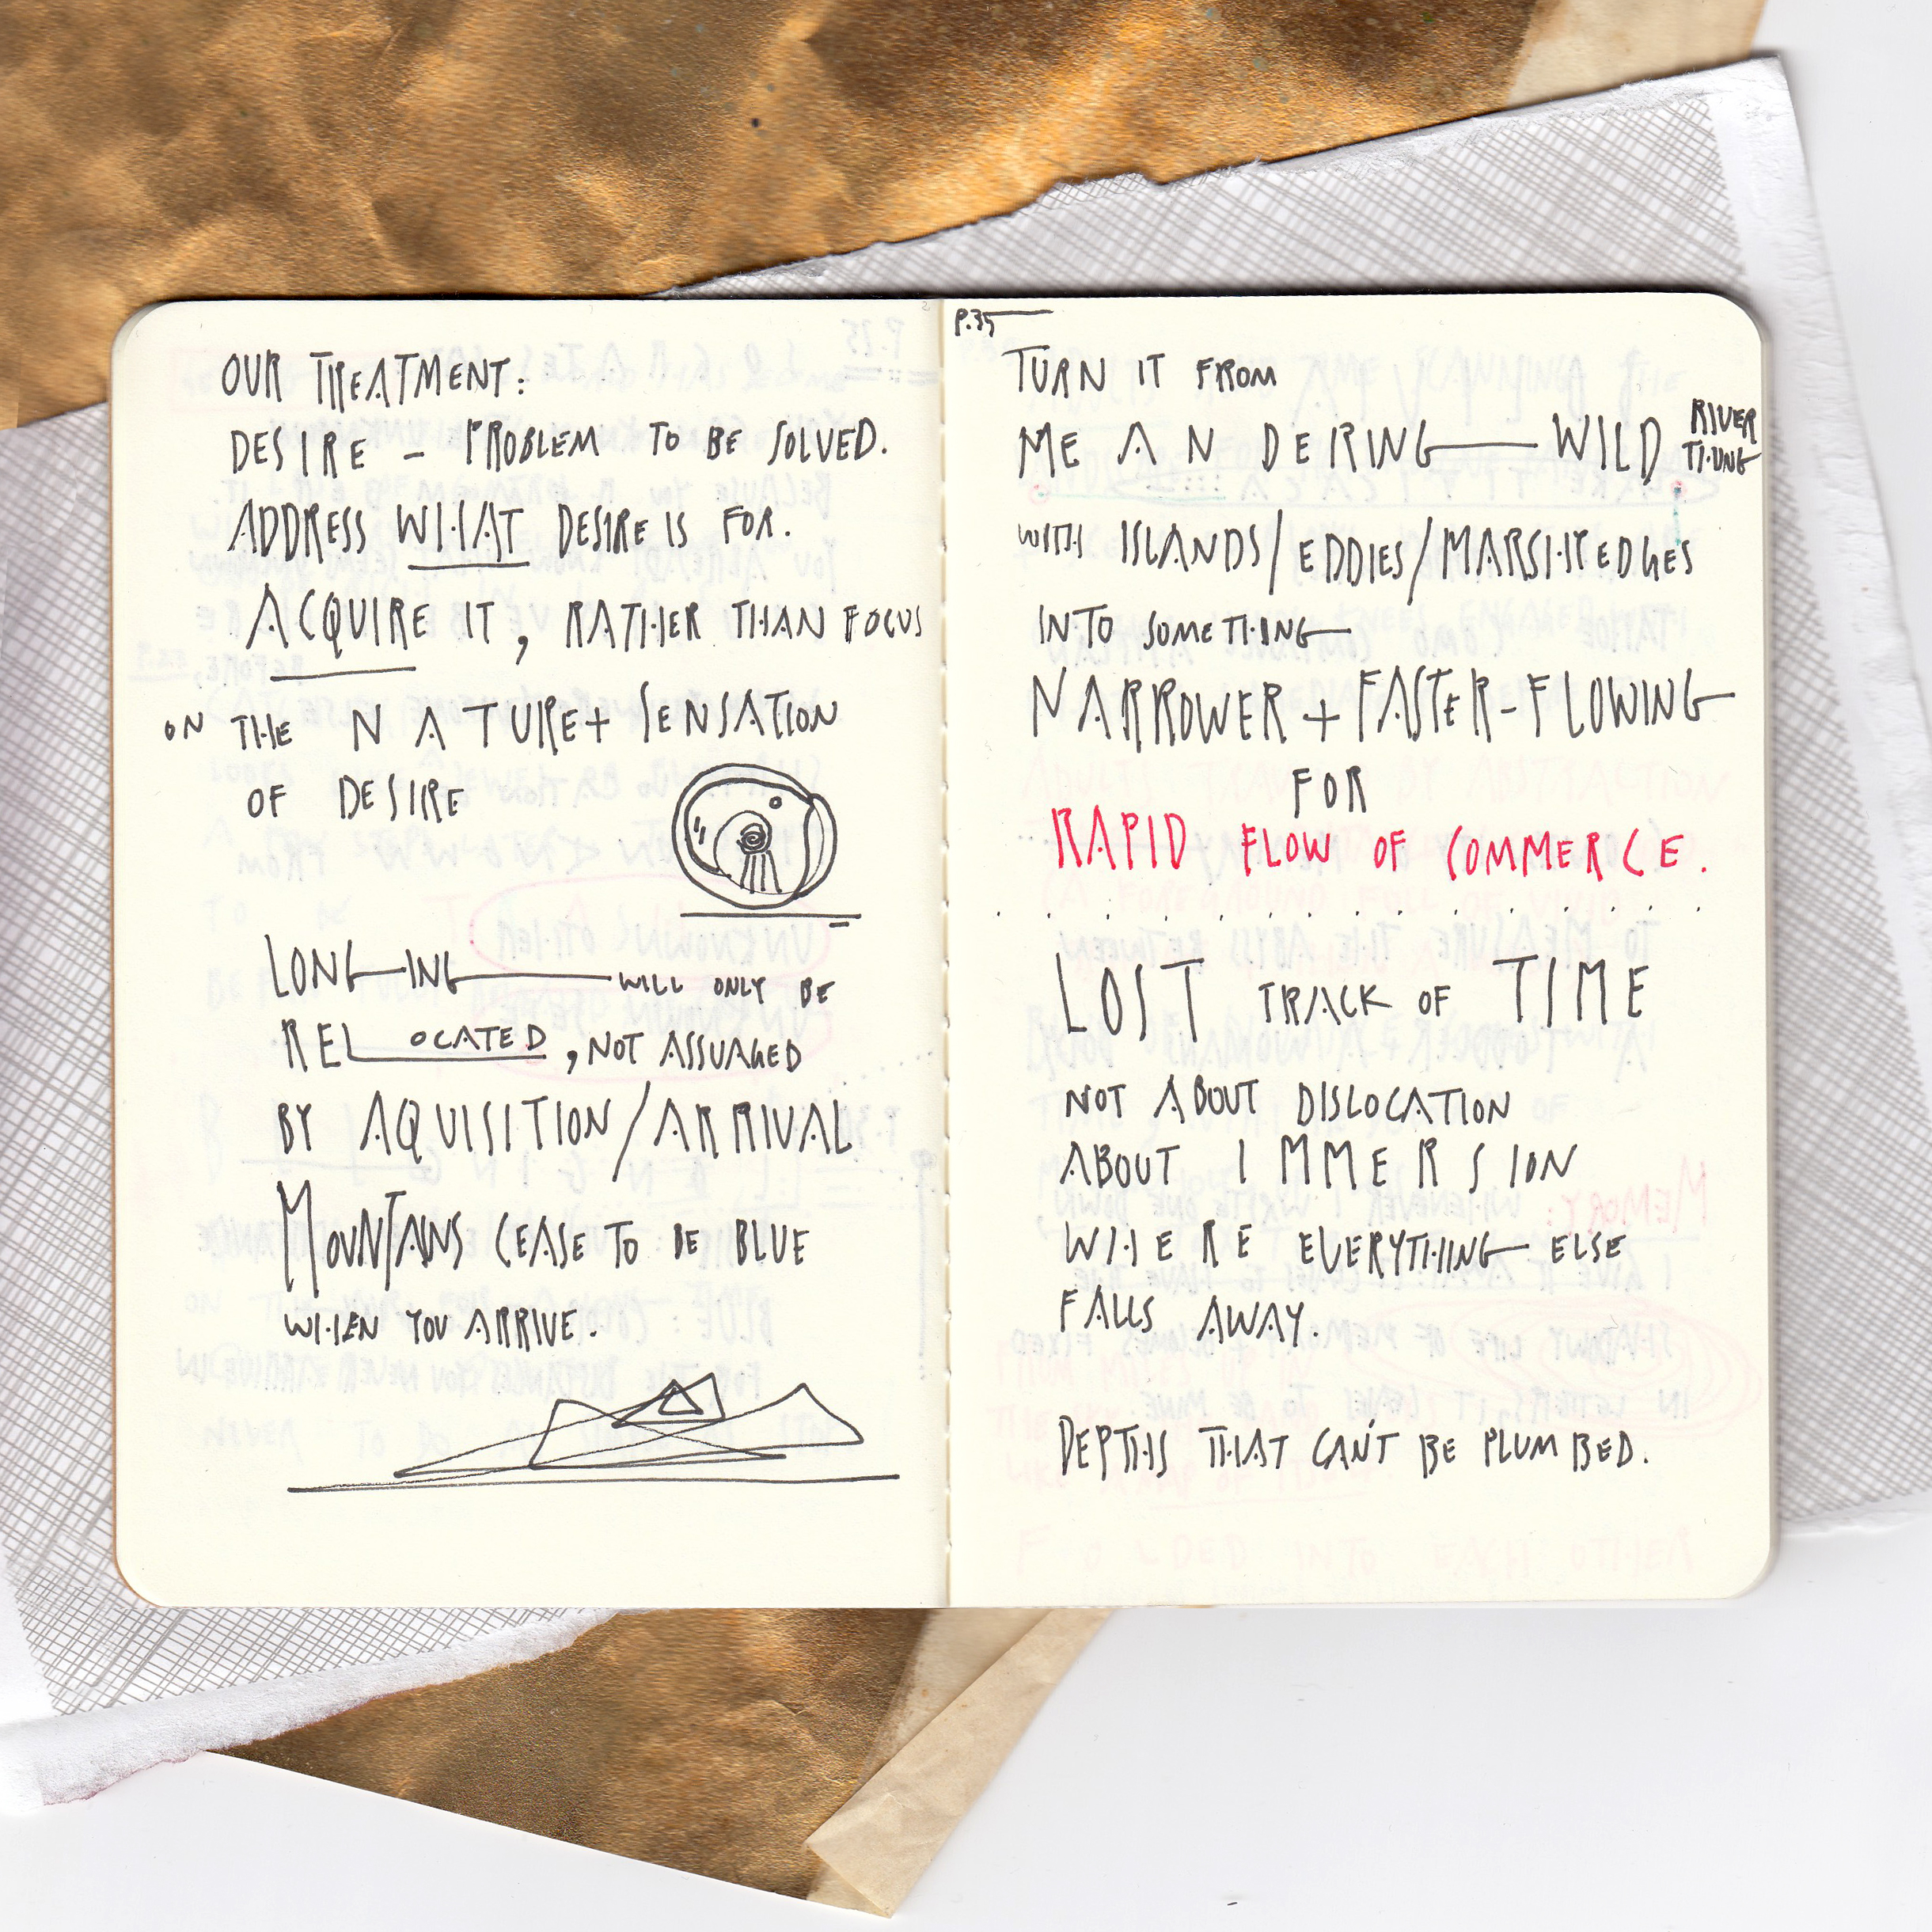 OUR TREATMENT:
DESIRE – PROBLEM TO BE SOLVED.
ADDRESS WHAT DESIRE IS FOR.
ACQUIRE IT, RATHER THAN FOCUS
ON THE NATURE + SENSATION
OF DESIRE
LONG—ING—WILL ONLY BE
RELOCATED, NOT ASSUAGED
BY AQUISITION/ARRIVAL
MOUNTAINS CEASE TO BE BLUE
WHEN YOU ARRIVE.
P.35
TURN IT FROM
MEANDERING—WILD RIVER THING
WITH ISLANDS/EDDIES/MARSHY EDGES
INTO SOMETHING—
NARROWER + FASTER-FLOWING
FOR
RAPID FLOW OF COMMERCE.
LOST TRACK OF TIME
NOT ABOUT DISLOCATION
ABOUT IMMERSION
WHERE EVERYTHING ELSE
FALLS AWAY.
DEPTHS THAT CAN'T BE PLUMBED.